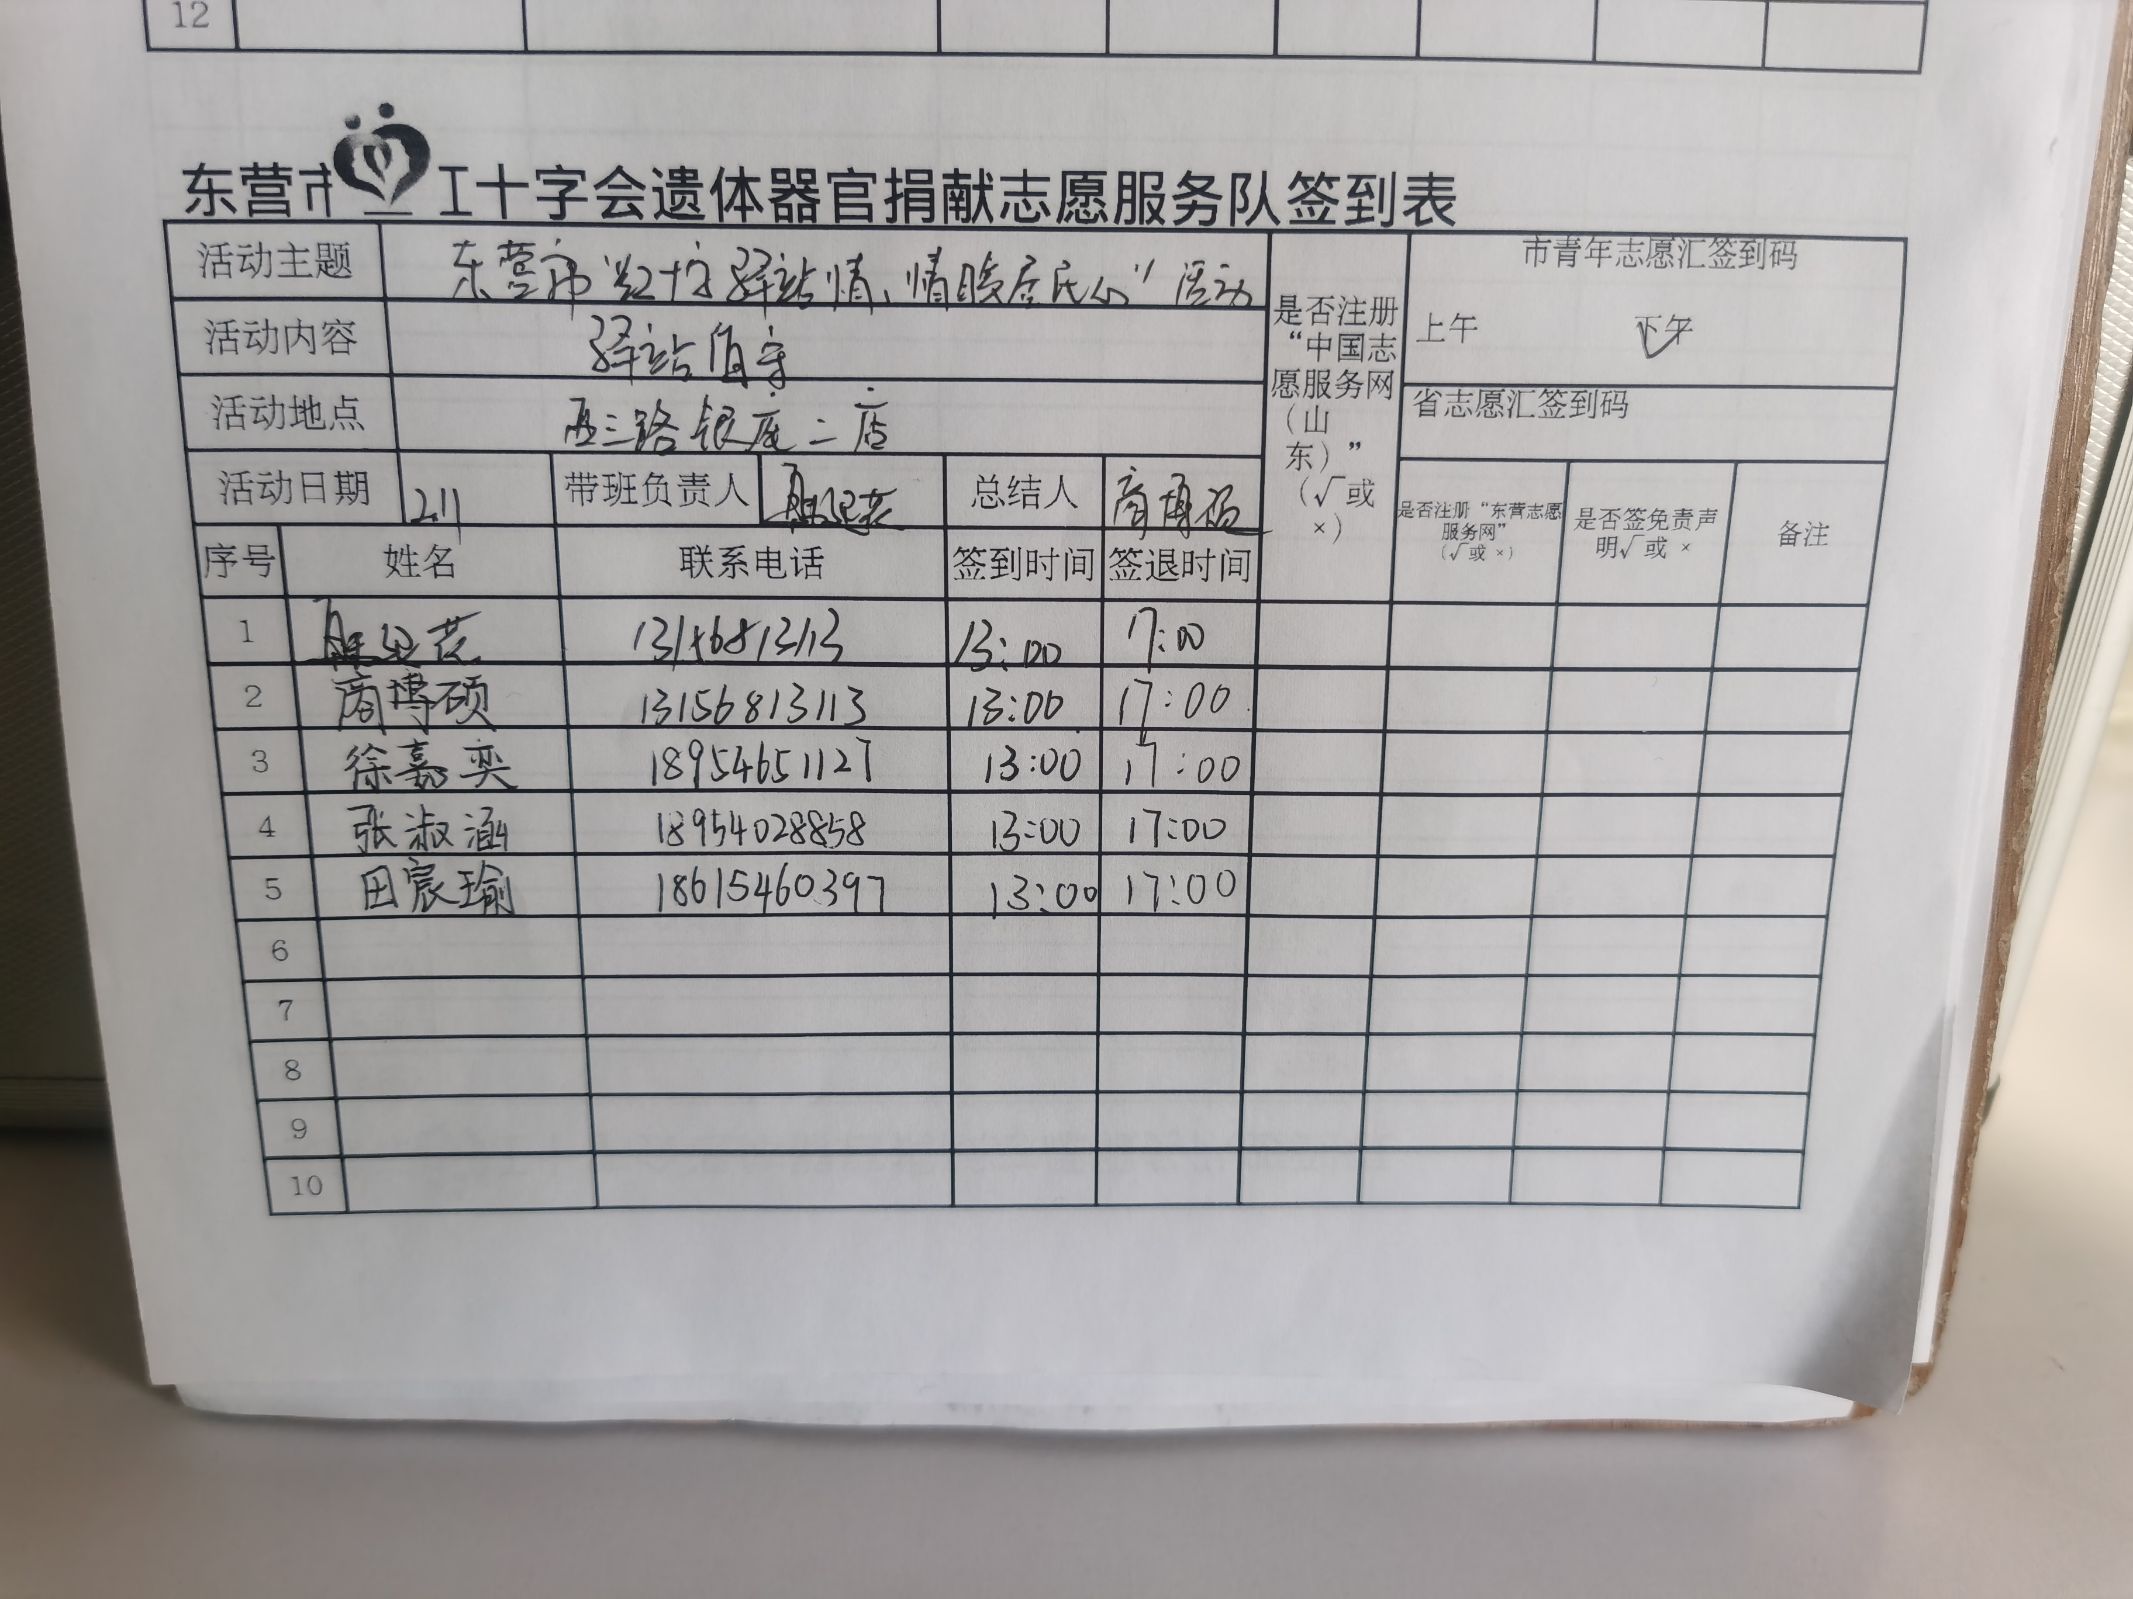 12
东营市 工十字会遗体器官捐献志愿服务队签到表
活动主题 东营市"红十字驿站情、情暖居民心"活动
市青年志愿汇签到码
上午 下午 √
活动内容 驿站值守
省志愿汇签到码
活动地点 西三路银座二店
是否注册
“中国志
愿服务网
（山
东）”
（√或
×）
活动日期 2.11 带班负责人 总结人 商博硕
是否注册“东营志愿
服务网”
（√或 ×）
是否签免责声
明√或 ×
备注
序号 姓名 联系电话 签到时间 签退时间
1 13156813113 13:00 17:00
2 商博硕 13156813113 13:00 17:00
3 徐嘉奕 18954651127 13:00 17:00
4 张淑涵 18954028858 13:00 17:00
5 田宸瑜 18615460397 13:00 17:00
6
7
8
9
10